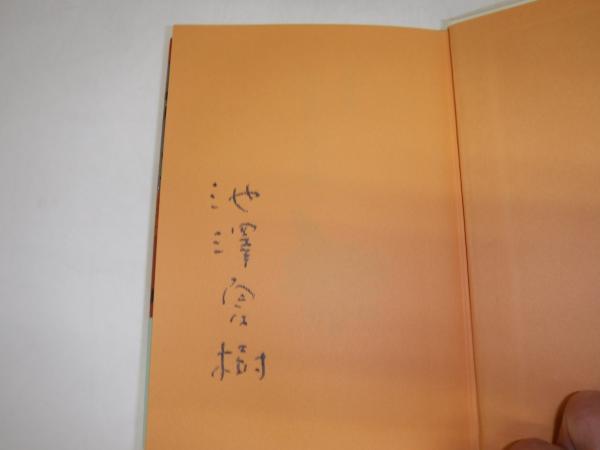 池澤夏樹